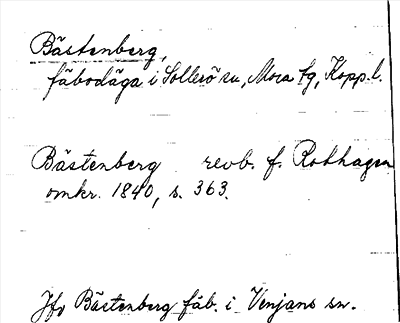 Bästenberg,
fäbodäga i Sollerö sn, Mora tg, Kopp.l.
Bästenberg revb. f. Rothagen
omkr. 1840, s. 363.
Jfr Bästenberg fäb. i Venjans sn.